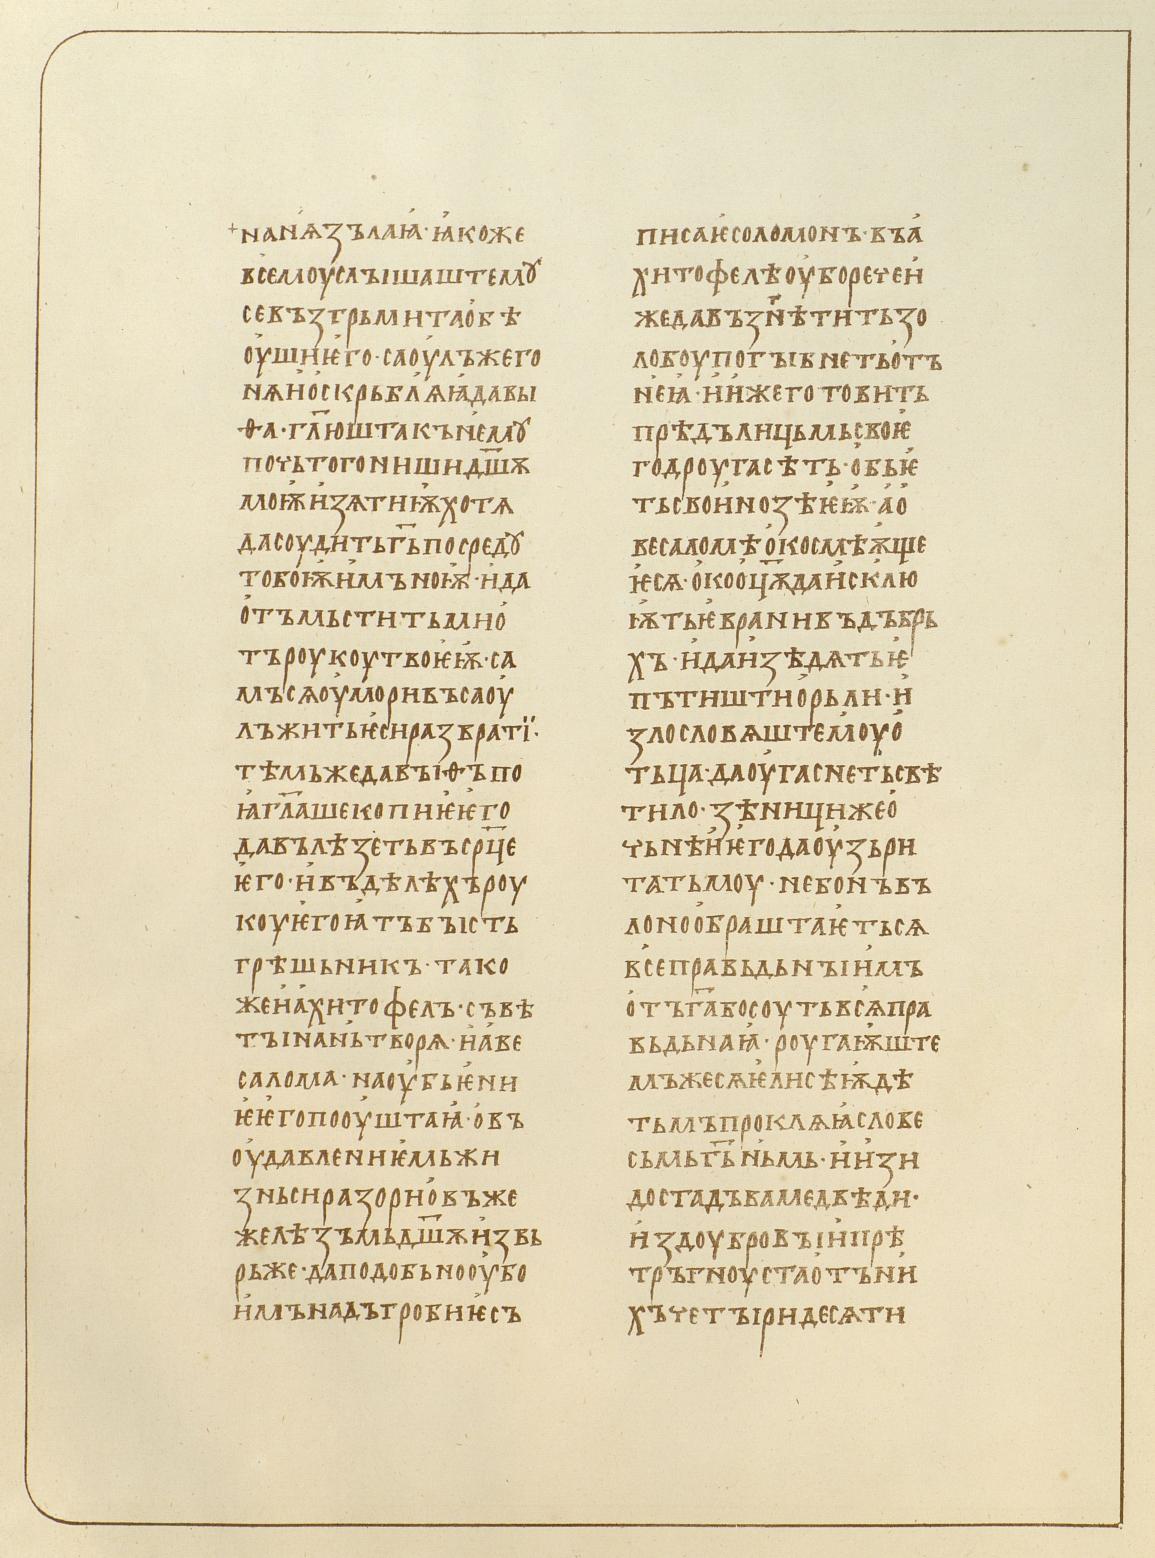 +нанѧзълаꙗ· ꙗкоже
вьсемоуслъішаштемꙋ
севъзгрьмитаобѣ
оушиѥго·саоулъжего
нѧноскрьблѧꙗдавы
ѳа·гл҃юштакънемꙋ
почьтогонишид҃шѫ
моѭизѧтиѭхотѧ
дасоудитьг҃ьпосредꙋ
тобоѭимъноѭ·ида
отъмьститьмно
търоукоутвоѥѭ·са
мъсѧоуморивъсаоу
лъжитьѥсиразвратї·
тѣмьжедавъіѳъпо
ꙗгл҃ашекопиѥѥго
давълѣзетьвъср҃це
ѥго·ивъдѣлѣхъроу
коуѥгоꙗтъбъість
грѣшьникъ·тако
жеиахитофелъ·съвѣ
тъінаньтворѧ·иаве
салома·наоубьѥни
ѥѥгопооуштаꙗ·овъ
оудавлениѥмьжи
зньсиразориовъже
желѣзъмьд҃шѫизвь
рьже·даподобьнооубо
имънадъгробиѥсъ
писаѥсоломонъ·въа
хитофелѣоуборечеи
жедавъзгнѣтитьзо
лобоупогъібнетьотъ
неꙗ·иижеготовить
прѣдълицьмьсвоѥ
годроугасѣть·обьѥ
тьсвоинозѣѥѭ·ао
весаломѣокосмѣѫщe
ѥсѧ·окооц҃ѫдаисклю
ѭтьѥвранивъдъбрь
хъ·идаизѣдѧтьѥ
пътиштиорьли·и
злословѧштемоуо
тьца·даоугаснетьсвѣ
тило·зѣницижео
чьнѣиѥгодаоузьри
татьмоу·небонъвъ
лонообраштаѥтьсѧ
всеправьдьнъіимъ
отъг҃абосоутьвсѧпра
вьдьнаꙗ·роугаѭште
мъжесѧѥлисѣѭдѣ
тьмъпроклѧꙗслове
сьмьг҃ьньмь·иизи
достадъвамедвѣди·
издоубровъіипрѣ
тръгноустаотъни
хъчетъіридесѧти